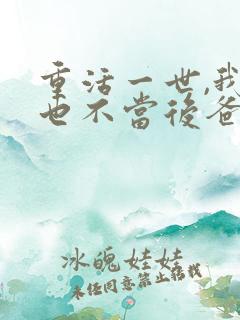 重活一世,我
也不當後爸
冰魄娃娃
未经同意禁止转载